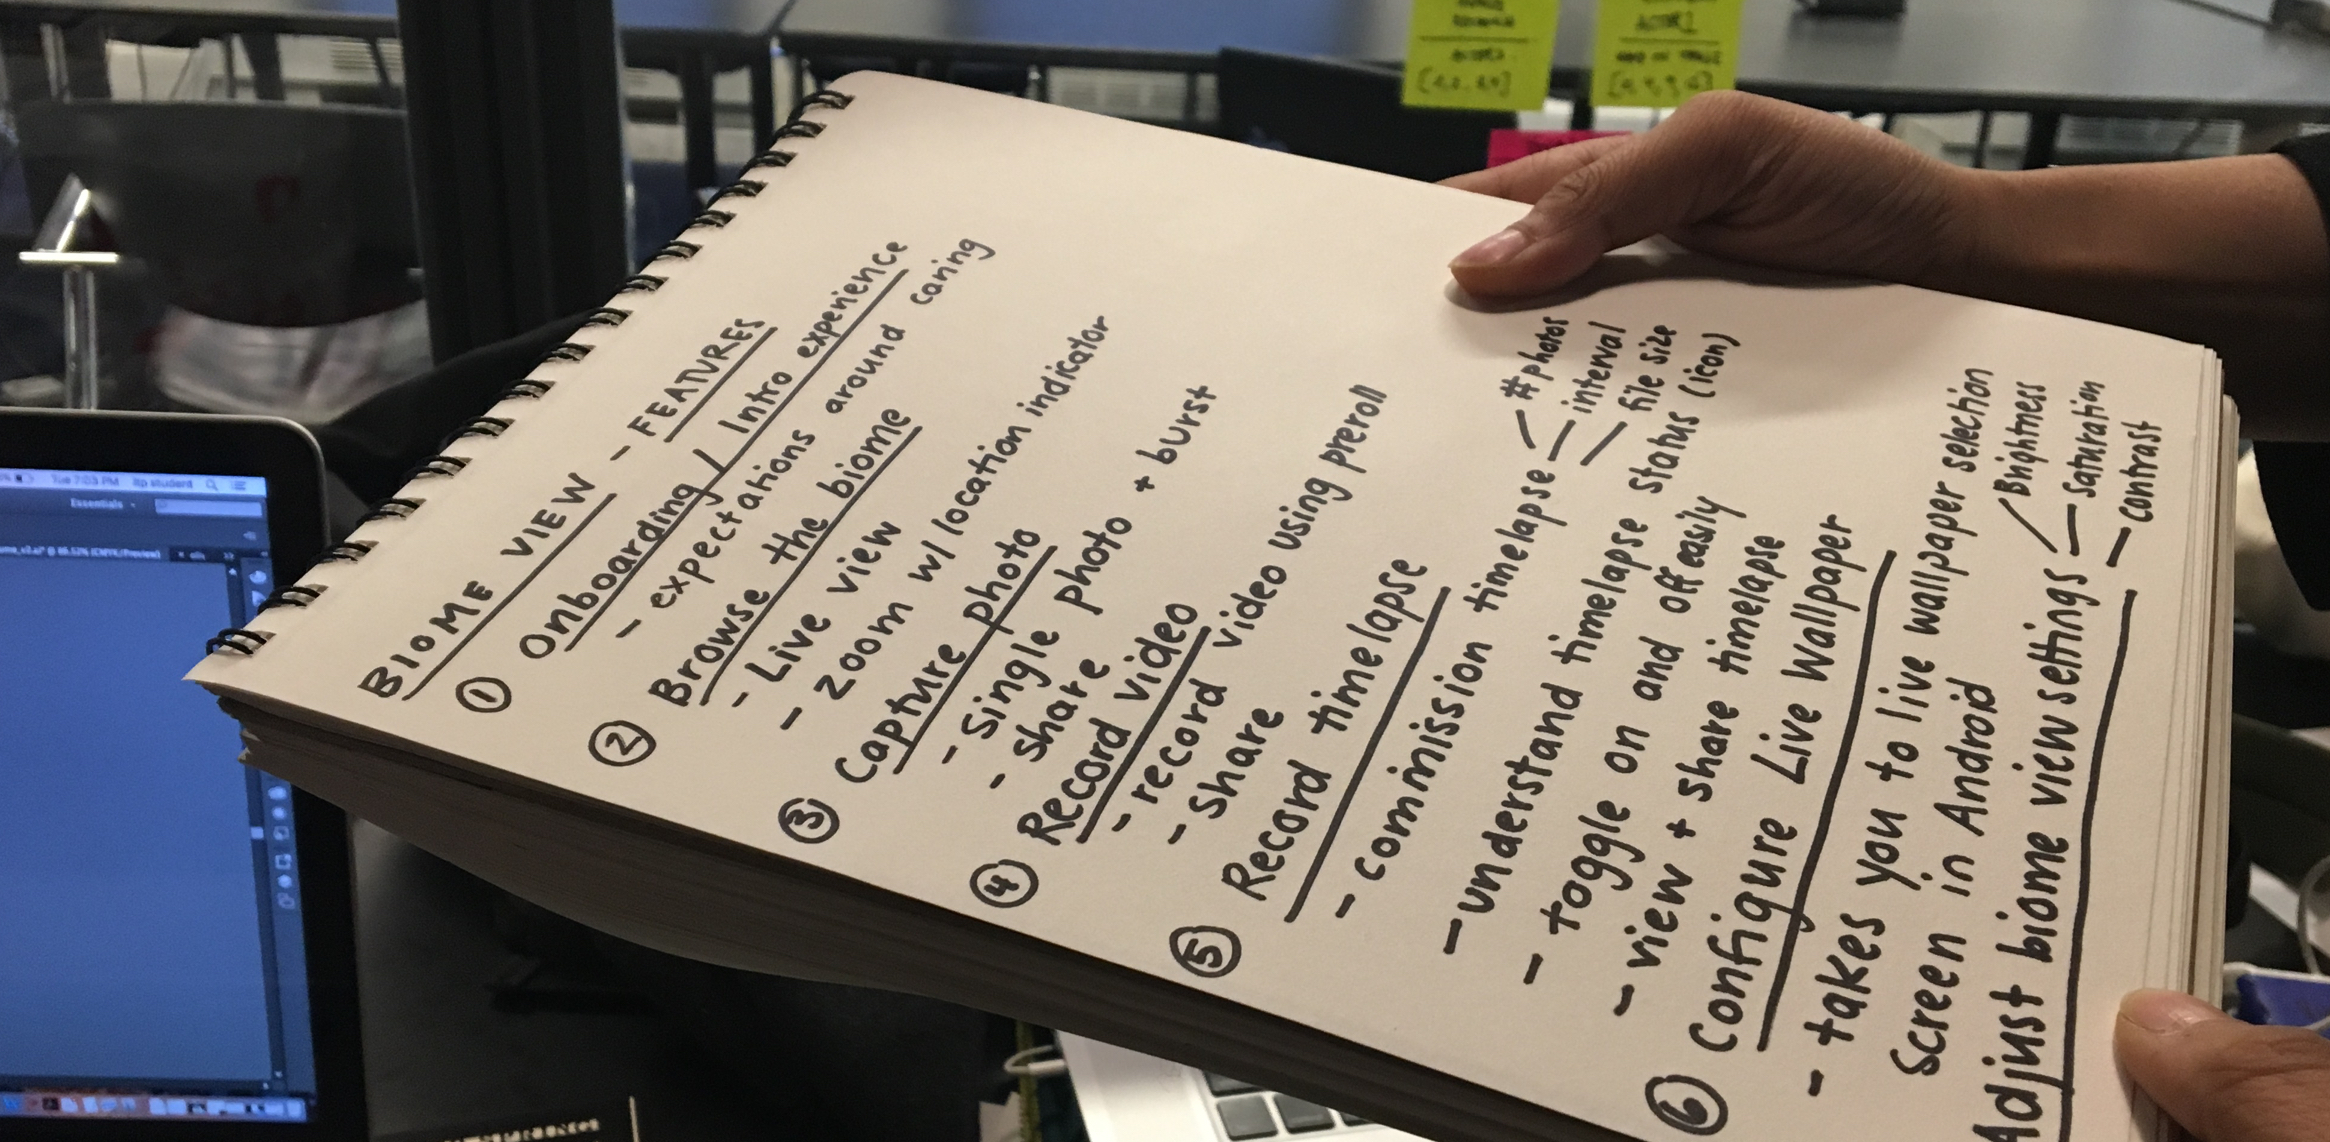 BIOME VIEW - FEATURES
① Onboarding / Intro experience
- expectations around caring
② Browse the biome
- Live view
- zoom w/ location indicator
③ Capture photo
- single photo + burst
- share
④ Record video
- record video using preroll
- share
⑤ Record timelapse
- commission timelapse - # photos
- interval
- file size
- understand timelapse status (icon)
- toggle on and off easily
- view + share timelapse
⑥ Configure Live Wallpaper
- takes you to live wallpaper selection
screen in Android
Adjust biome view settings - Brightness
- Saturation
- contrast
Tue 7:03 PM itp student
Essentials